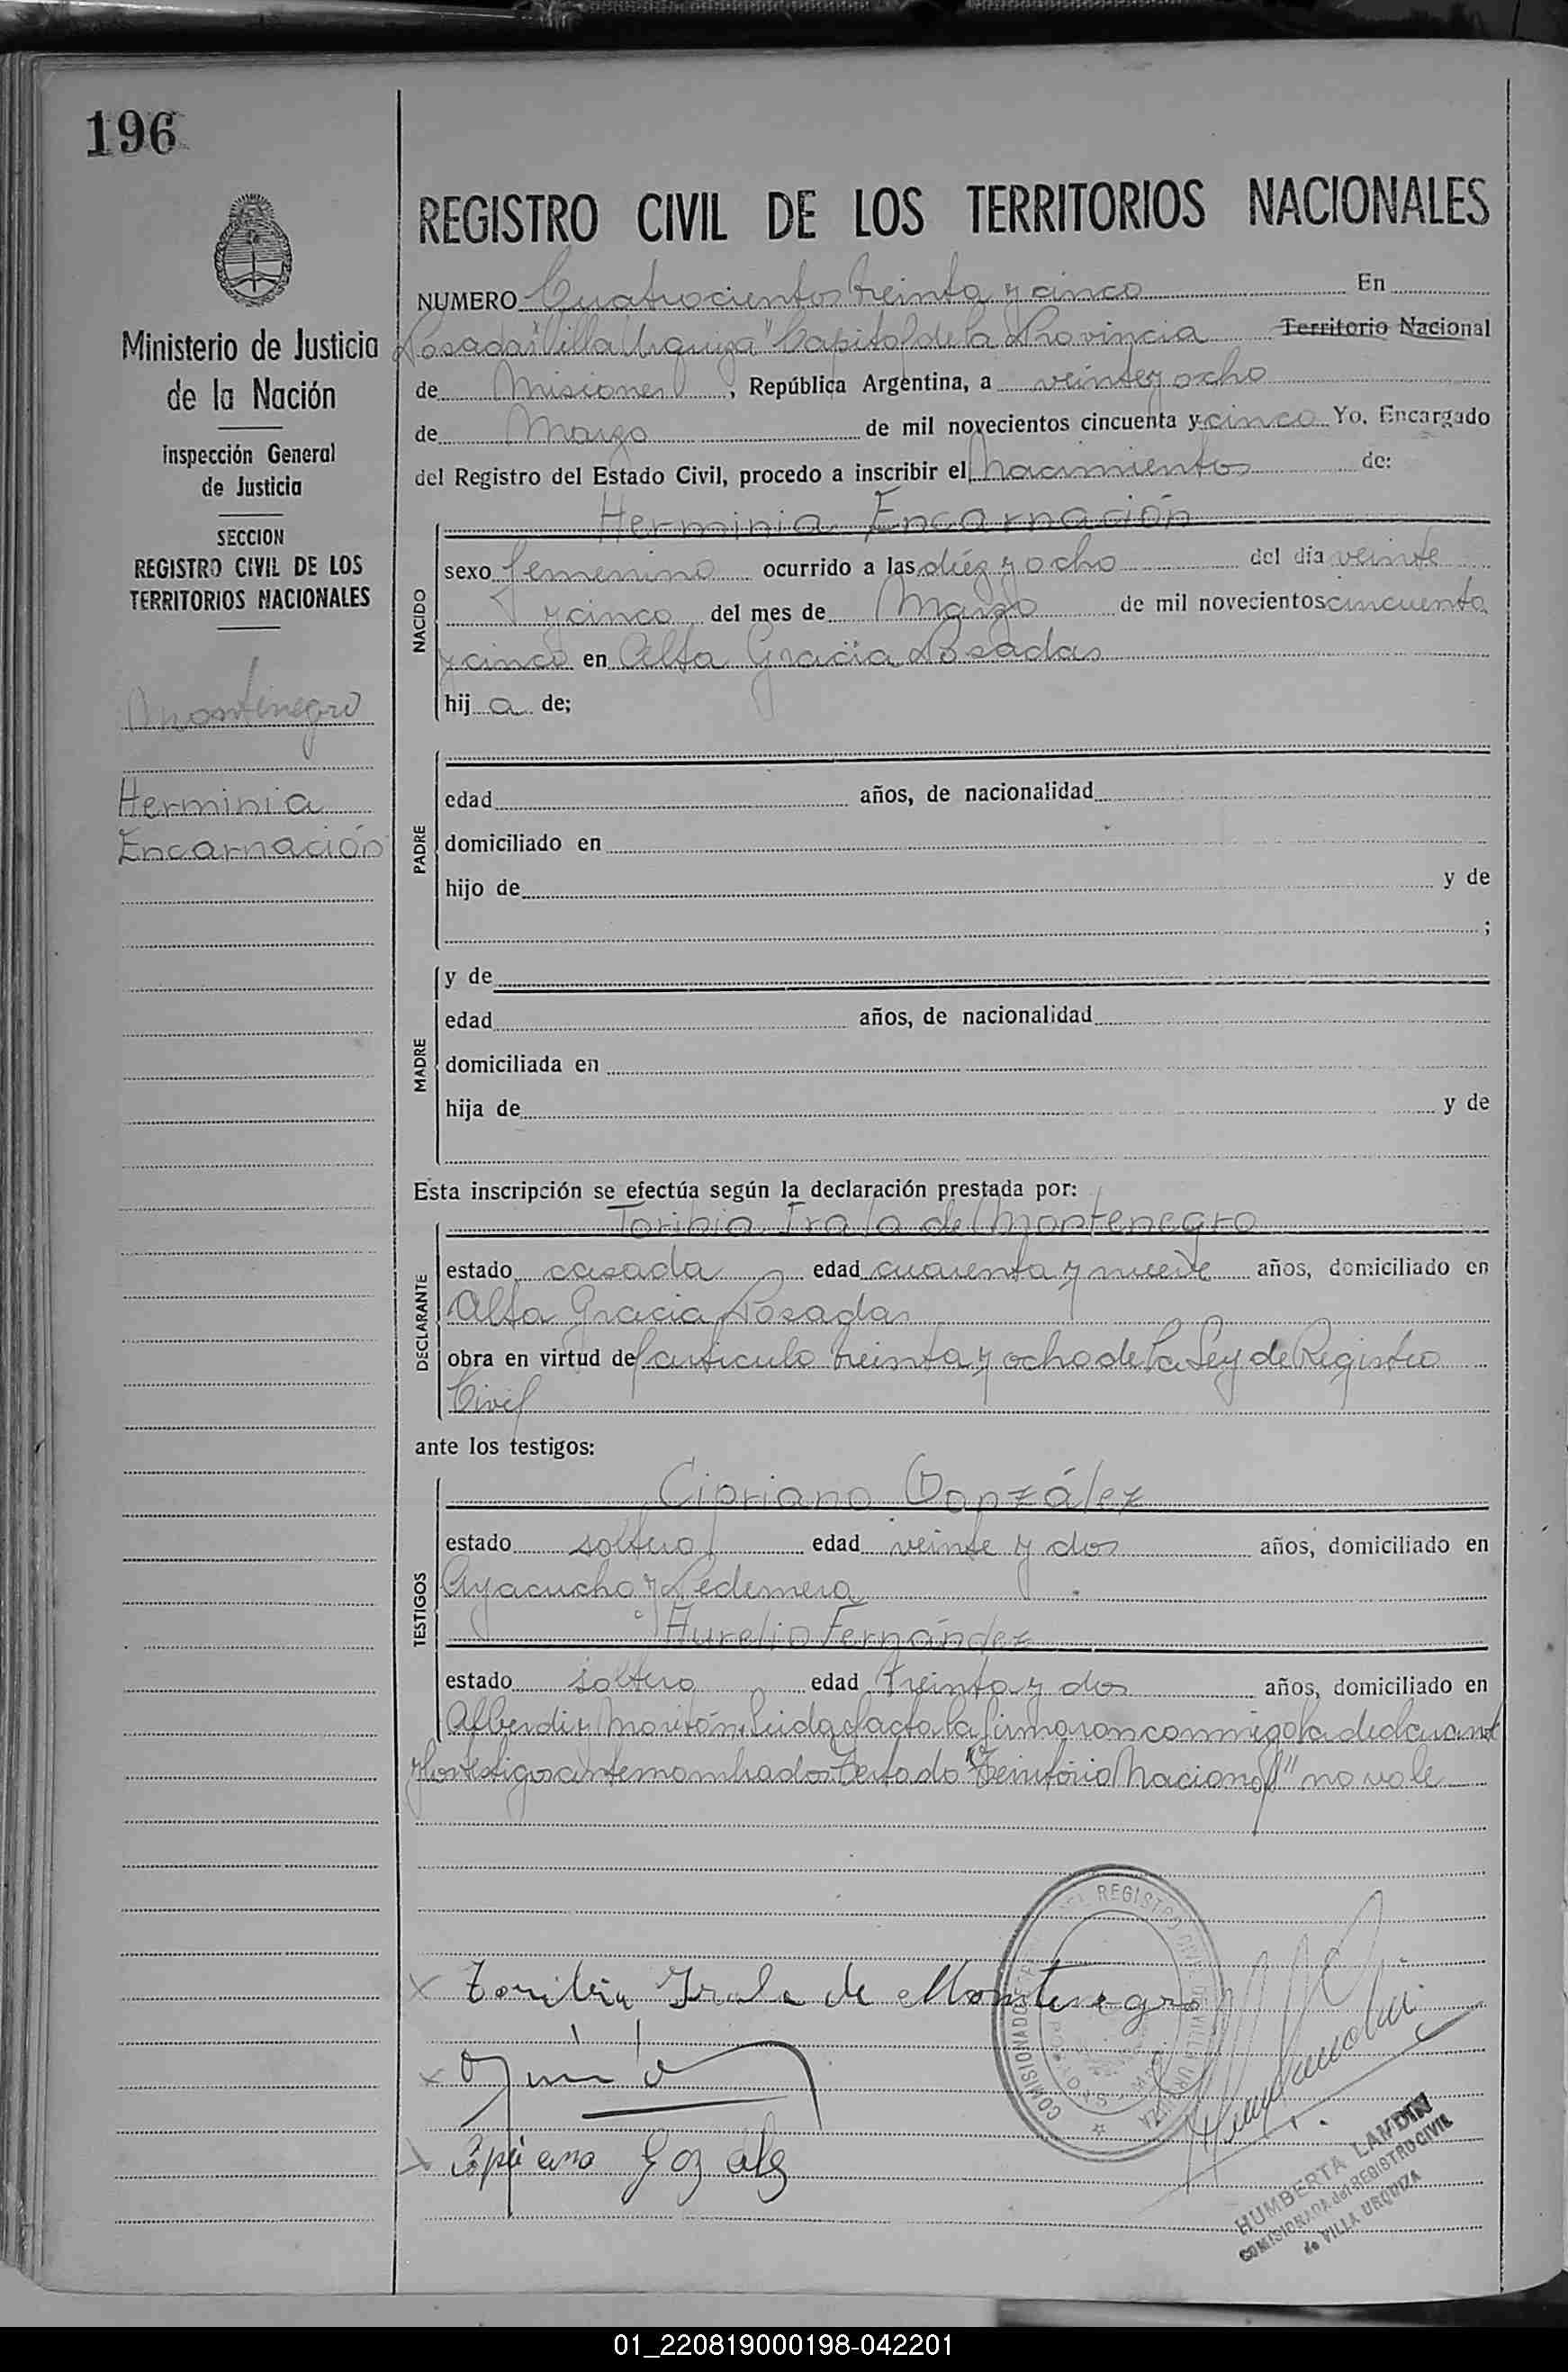 196
REGISTRO CIVIL DE LOS TERRITORIOS NACIONALES
Ministerio de Justicia
de la Nación
Inspección General
de Justicia
SECCION
REGISTRO CIVIL DE LOS
TERRITORIOS NACIONALES
Montenegro
Herminia
Encarnación
NUMERO Cuatrocientos treinta y cinco En
Posadas "Villa Urquiza" Capital de la Provincia Territorio Nacional
de Misiones, República Argentina, a veinte y ocho
de Marzo de mil novecientos cincuenta y cinco Yo, Encargado
del Registro del Estado Civil, procedo a inscribir el Nacimiento de:
NACIDO
Herminia Encarnación
sexo femenino ocurrido a las diéz y ocho del día veinte
y cinco del mes de Marzo de mil novecientos cincuenta
y cinco en Alta Gracia Posadas
hij a de;
PADRE
edad años, de nacionalidad
domiciliado en
hijo de y de
;
MADRE
y de
edad años, de nacionalidad
domiciliada en
hija de y de
Esta inscripción se efectúa según la declaración prestada por:
DECLARANTE
Toribia Irala de Montenegro
estado casada edad cuarenta y nueve años, domiciliado en
Alta Gracia Posadas
obra en virtud del articulo treinta y ocho de la Ley de Registro
Civil
ante los testigos:
TESTIGOS
Cipriano González
estado soltero edad veinte y dos años, domiciliado en
Ayacucho y Pedernera
Aurelio Fernández
estado soltero edad treinta y dos años, domiciliado en
Alberdi y Leida el acta la firmaron conmigo la declarant
y los testigos antenombrados Testado "Territorio Nacional" no vale
Toribia Irala de Montenegro
COMISIONADO REGISTRO CIVIL DE VILLA URQUIZA
HUMBERTA LANDIN
COMISIONADA del REGISTRO CIVIL
de VILLA URQUIZA
01_220819000198-042201